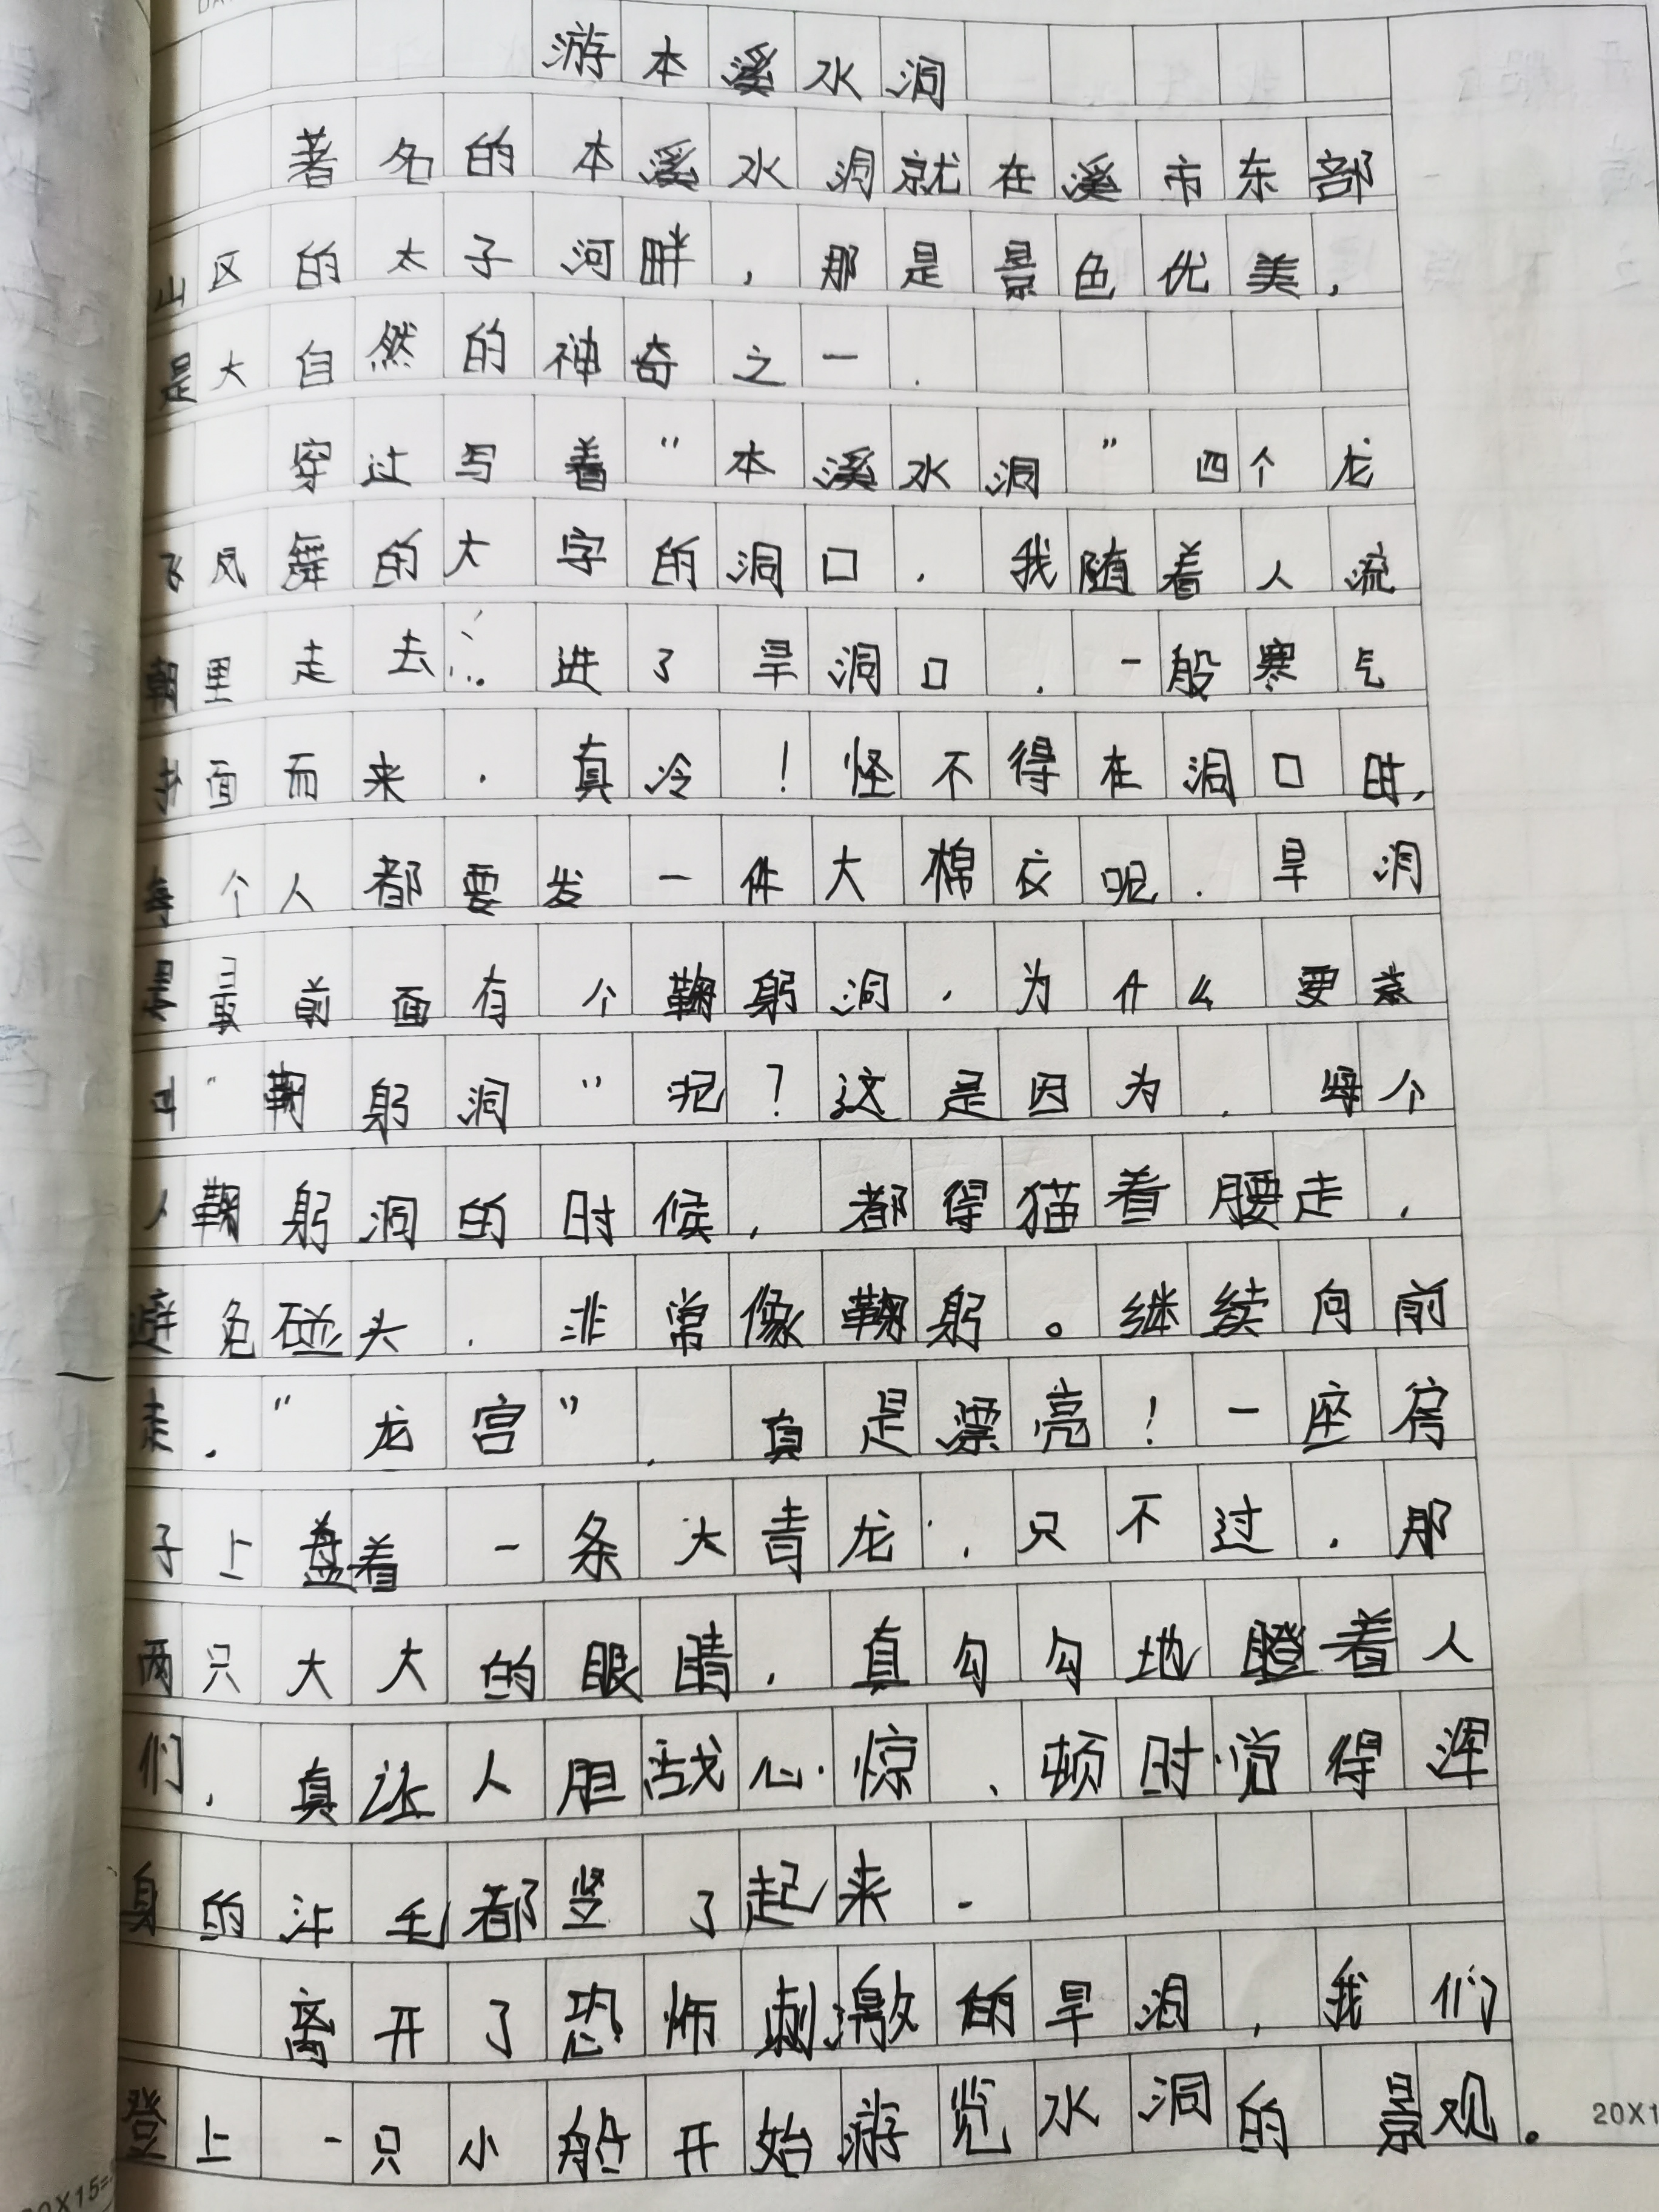 游本溪水洞
著名的本溪水洞就在溪市东部
山区的太子河畔，那是景色优美，
是大自然的神奇之一.
穿过写着“本溪水洞”四个龙
飞凤舞的大字的洞口.我随着人流
朝里走去……进了旱洞口.一般寒气
扑面而来.真冷！怪不得在洞口时，
每个人都要发一件大棉衣呢.旱洞
最前面有个鞠躬洞，为什么要
叫“鞠躬洞”呢？这是因为.每个
人鞠躬洞的时候，都得猫着腰走，
避免碰头.非常像鞠躬。继续向前
走.“龙宫”.真是漂亮！一座房
子上盘着一条大青龙，只不过.那
两只大大的眼睛，直勾勾地瞪着人
们，真让人胆战心惊、顿时觉得浑
身的汗毛都竖了起来.
离开了恐怖刺激的旱洞，我们
登上一只小船开始游览水洞的景观。
20X15=
20X1